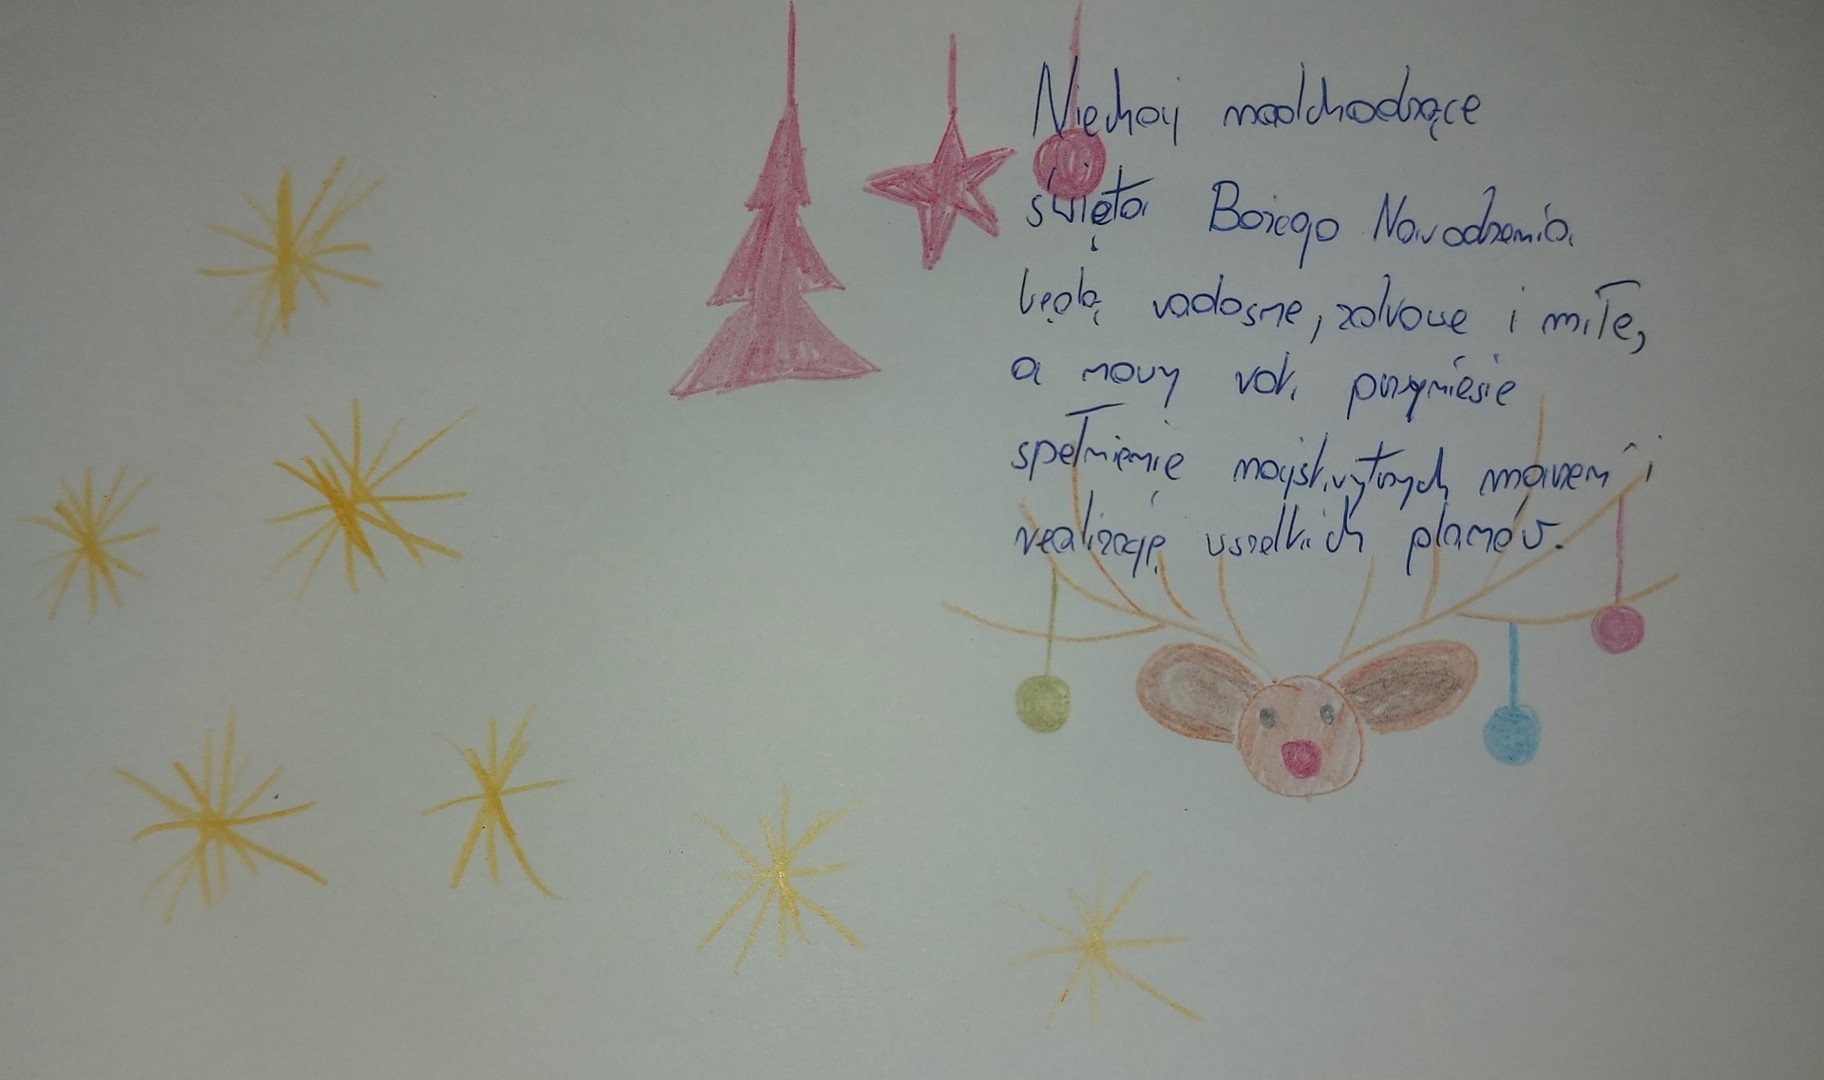 Niechaj nadchodzące
święta Bożego Narodzenia
będą radosne, zdrowe i miłe,
a nowy rok przyniesie
spełnienie najskrytszych marzeń i
realizację wszelkich planów.